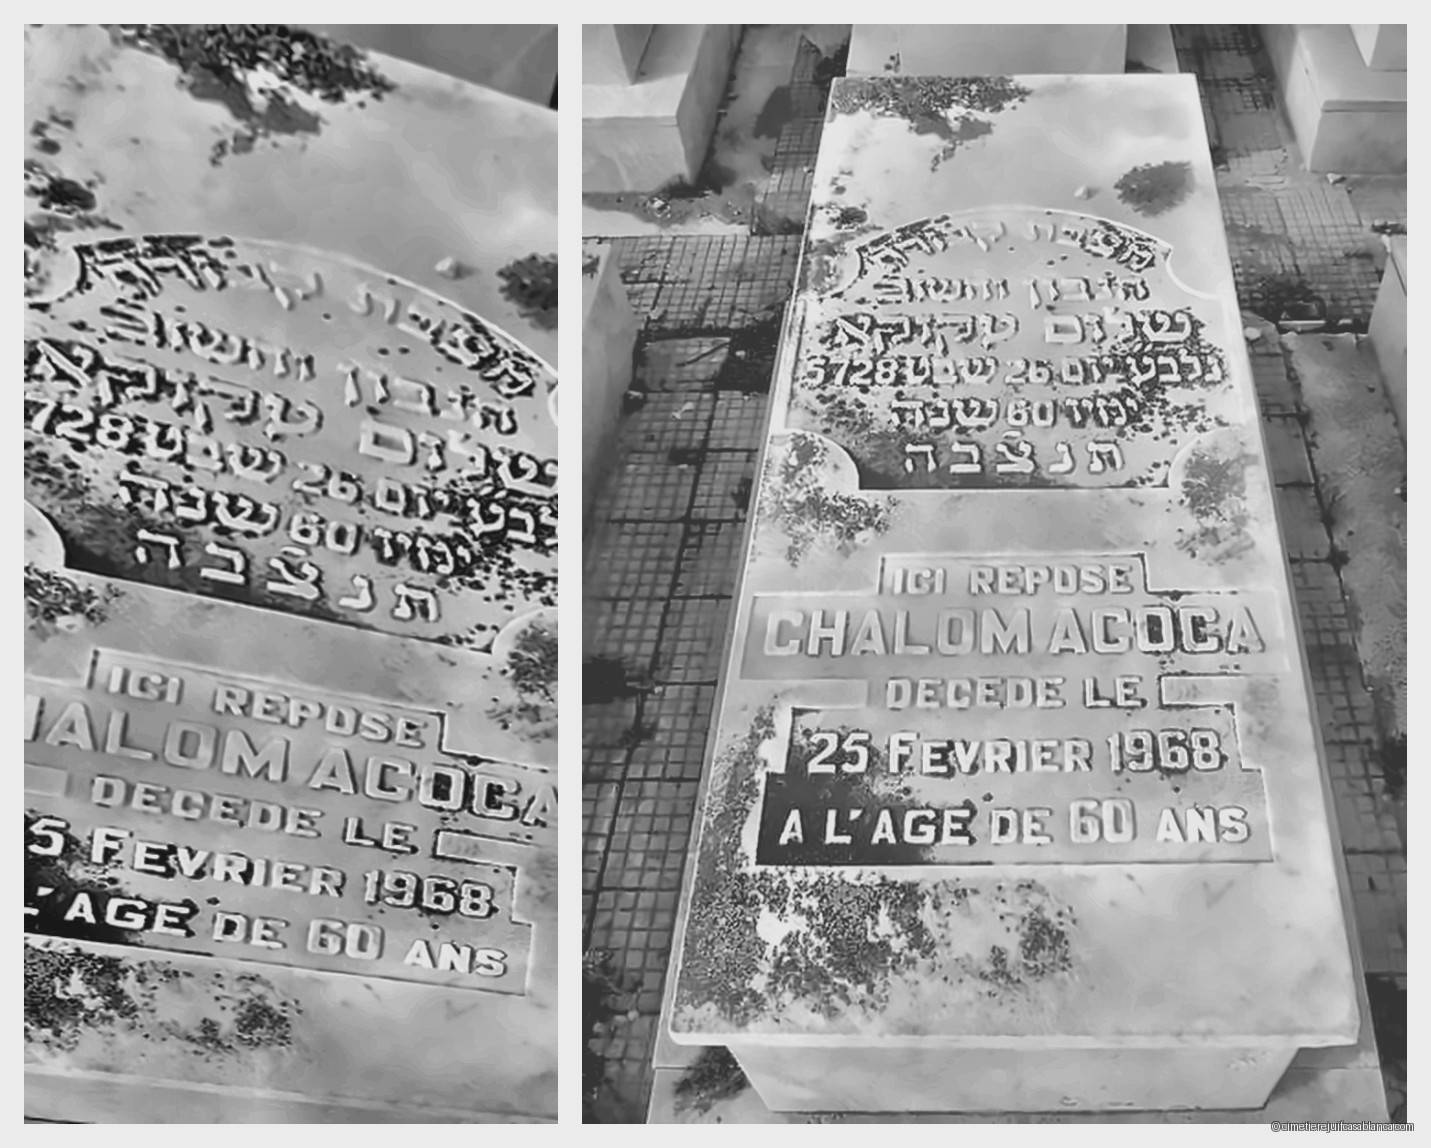 מצבת קבורת
הנבון והשוב
שלום עקוקא
לבע יום 26 שבט 728
ימיו 60 שנה
ת נ צ ב ה
ICI REPOSE
HALOM ACOCA
DECEDE LE
5 FEVRIER 1968
L'AGE DE 60 ANS
מצבת קבורת
הנבון והשוב
שלום עקוקא
נלבע יום 26 שבט 5728
ימיו 60 שנה
ת נ צ ב ה
ICI REPOSE
CHALOM ACOCA
DECEDE LE
25 FEVRIER 1968
A L'AGE DE 60 ANS
©cimetierejuifcasablanca.com